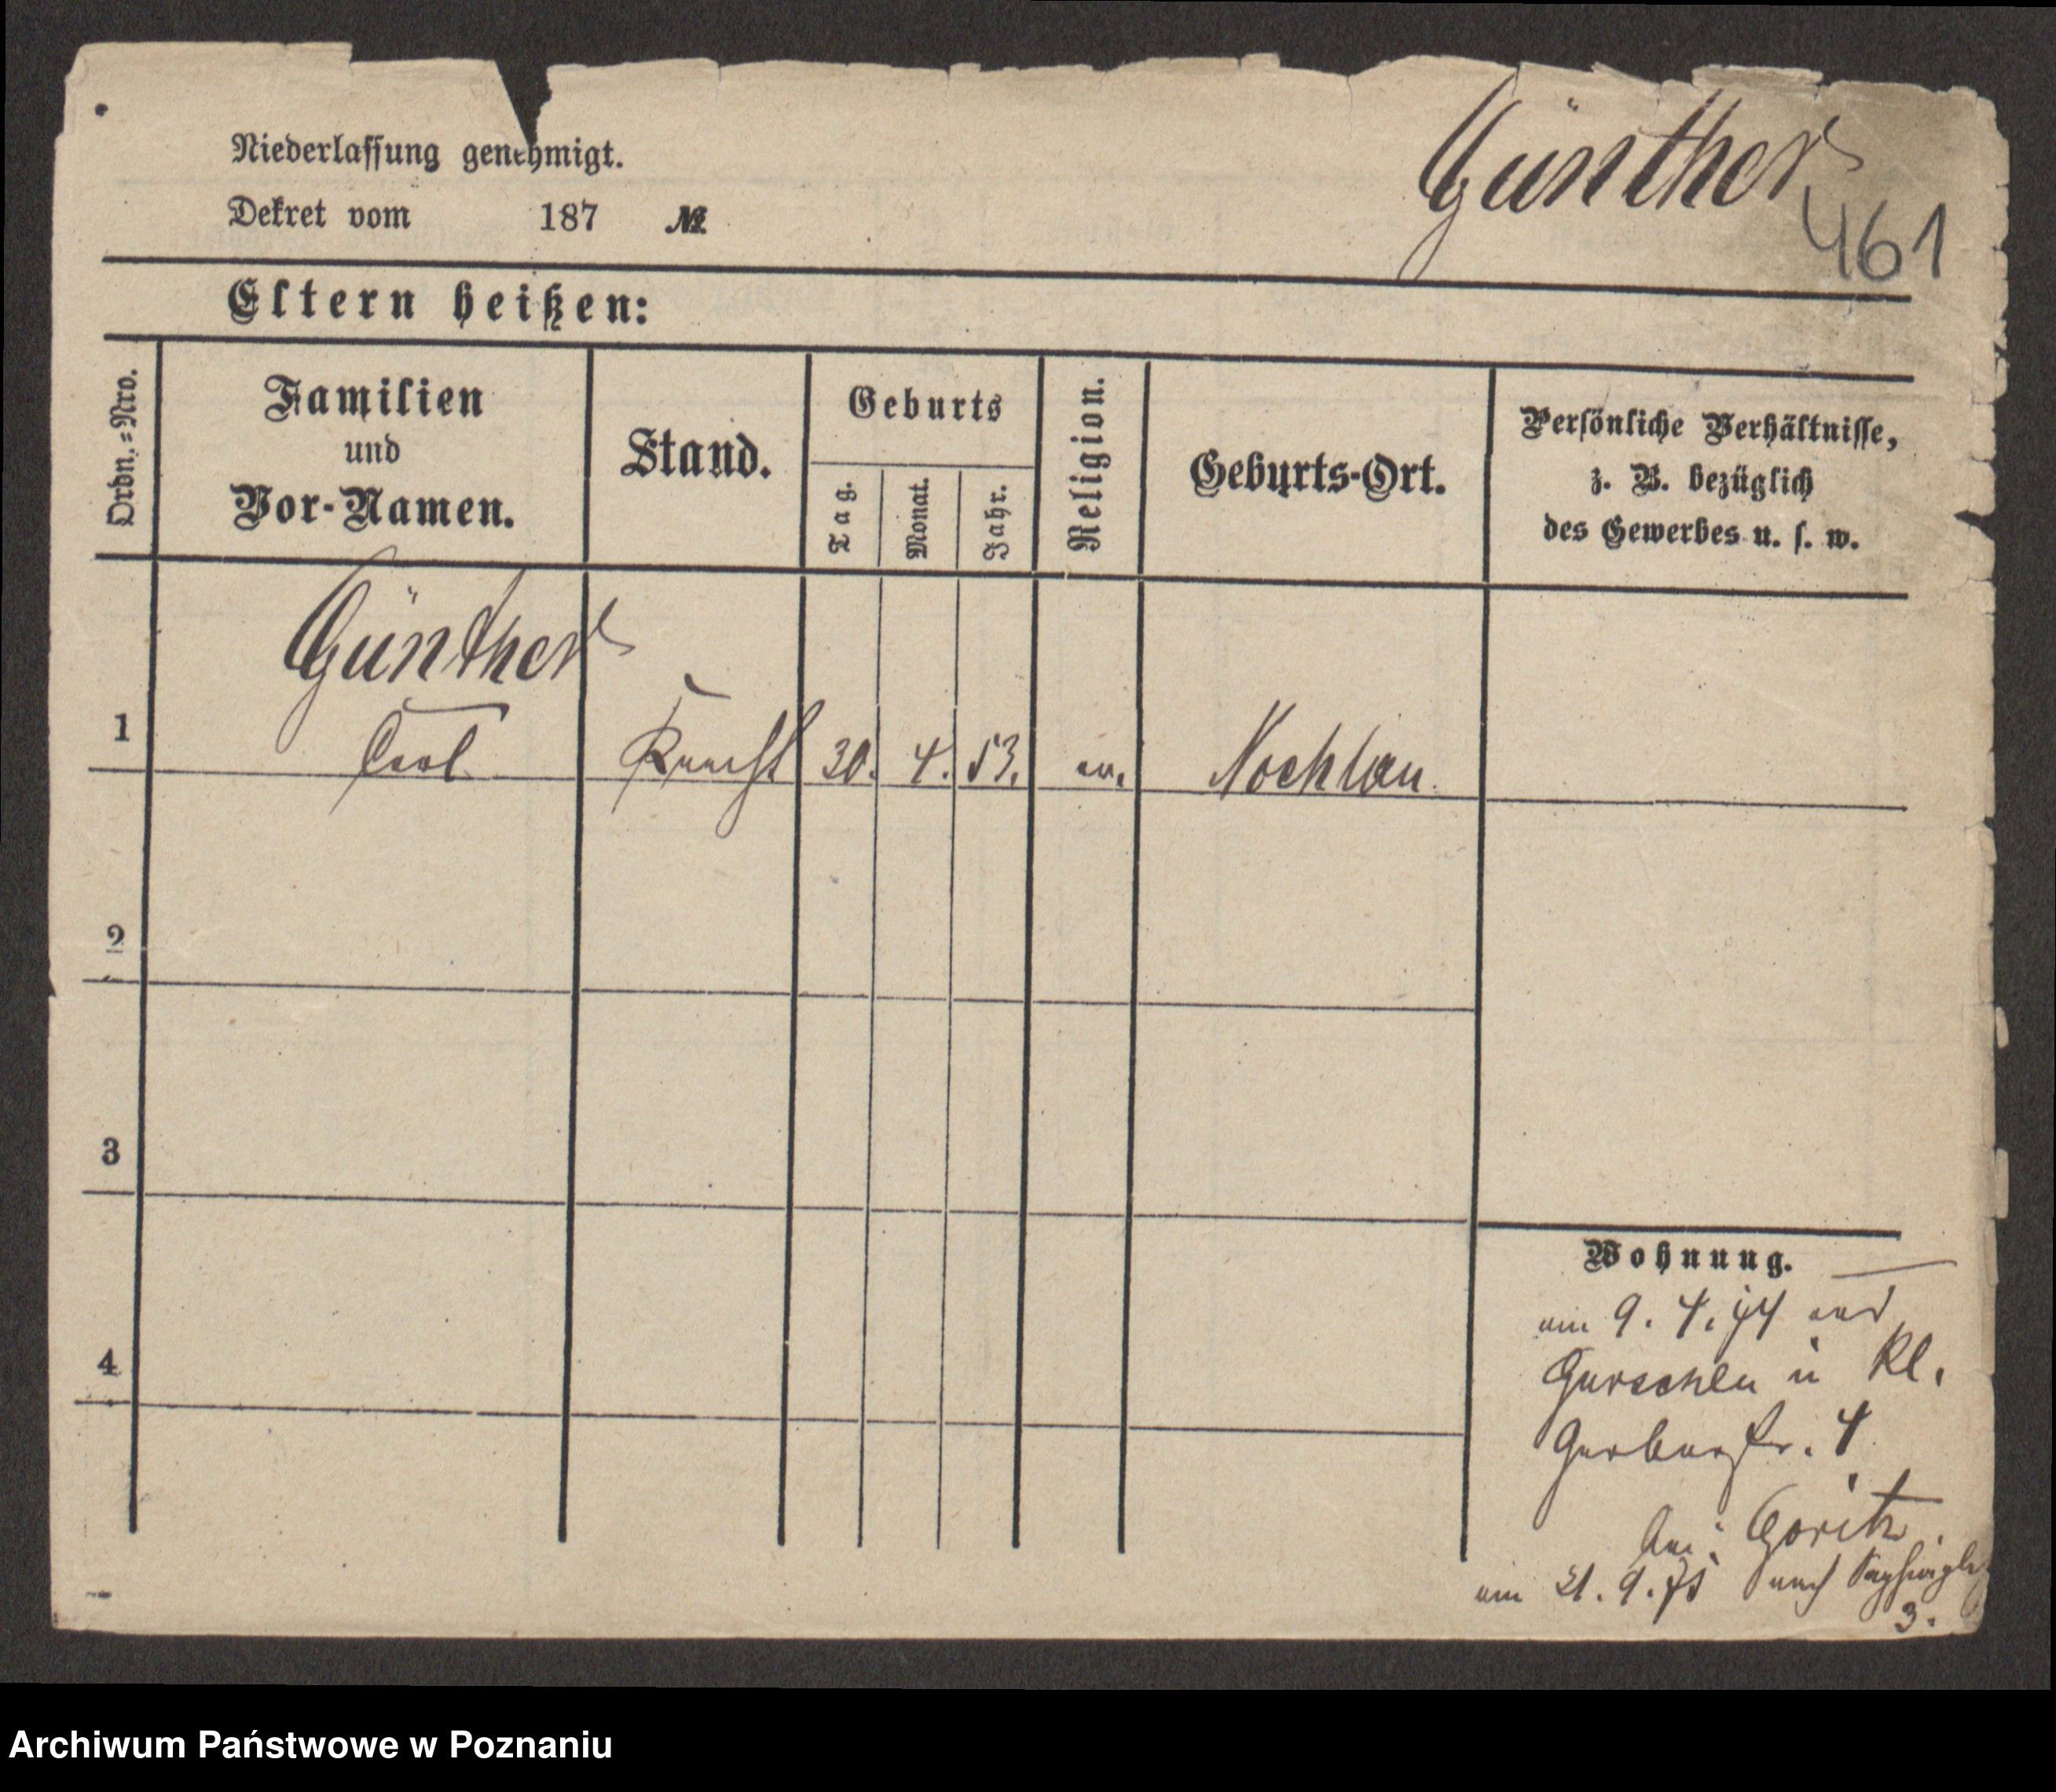 Niederlassung genehmigt.
Günther
Dekret vom 187 №
461
Eltern heißen:
Ordn.=Nro.
Familien
und
Vor-Namen.
Stand.
Geburts
Tag.
Monat.
Jahr.
Religion.
Geburts-Ort.
Persönliche Verhältnisse,
z. B. bezüglich
des Gewerbes u. s. w.
Günther
1 Carl Knecht 30. 4. 53. ev. Nochlau
2
3
4
Wohnung.
am 9. 4. 74 aus
Gurschen in Kl.
Gerberstr. 4
bei Goritz.
am 21. 9. 75 nach
3.
Archiwum Państwowe w Poznaniu